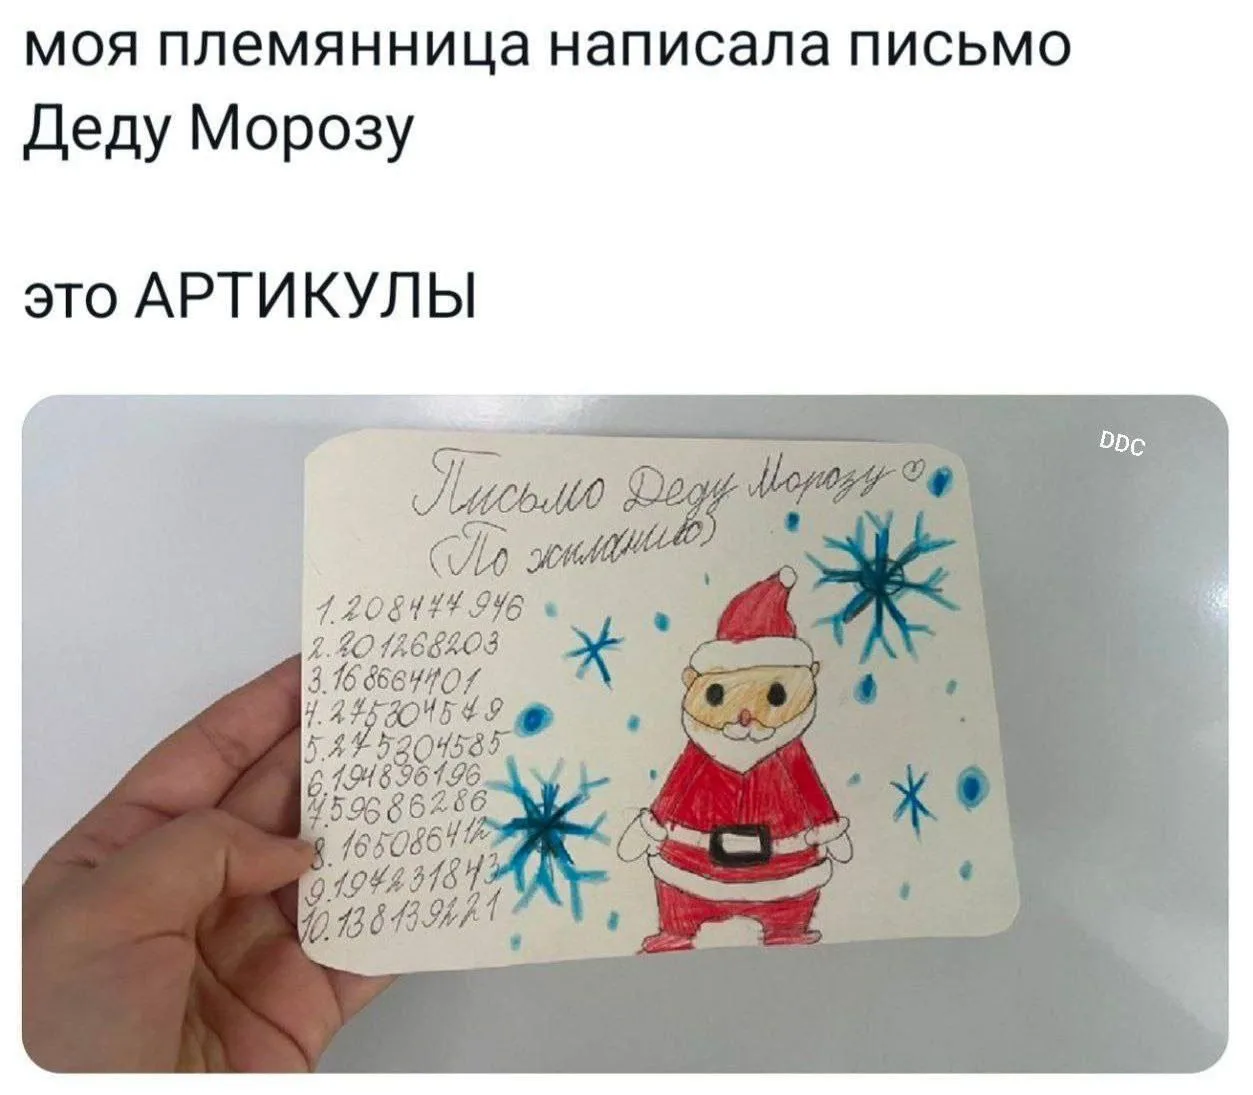 моя племянница написала письмо
Деду Морозу
это АРТИКУЛЫ
DDC
Письмо Деду Морозу ♡
(По жиланию)
1.208477946
2.201268203
3.168664701
4.275304579
5.275304585
6.194896196
7.59686286
8.165086412
9.197231843
10.138139221